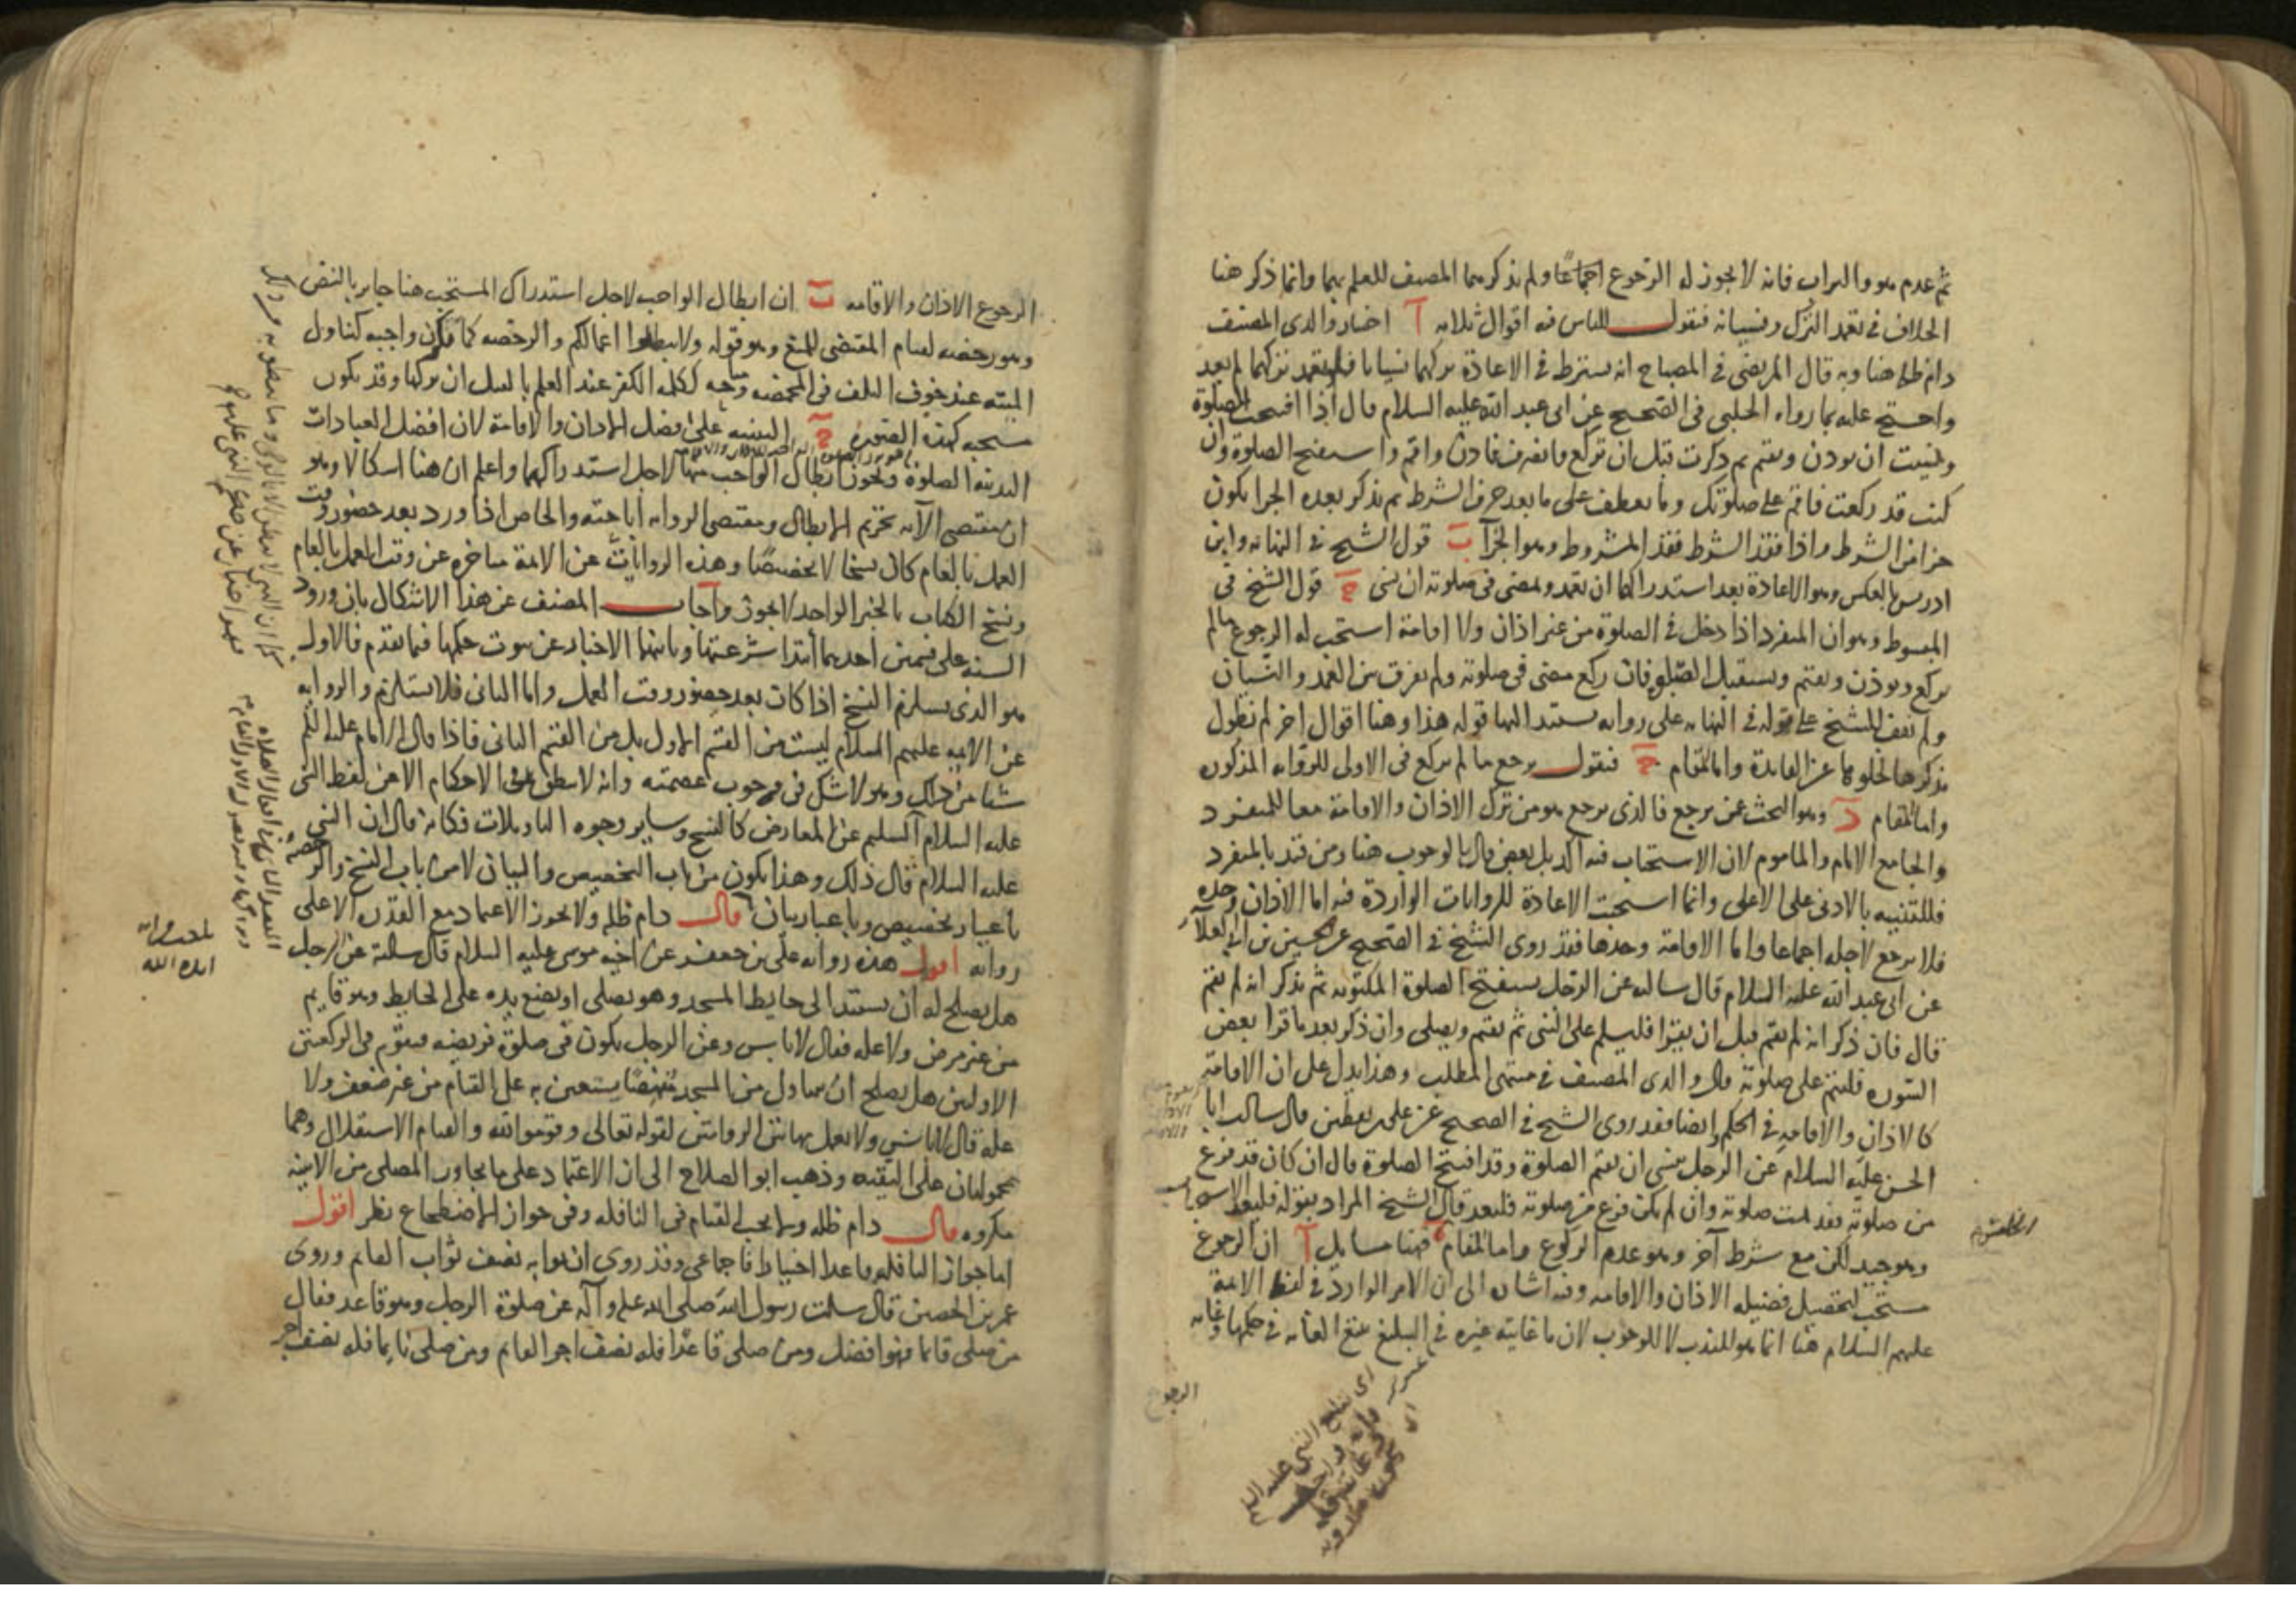 ثم عدم هو والتراب فانه لا يجوز له الرجوع اجماعا ولم يذكرهما المصنف للعلم بهما وانما ذكر هنا
الخلاف في تعمد الترك ونسيانه فنقول للناس فيه اقوال ثلاثة آ اختار والدى المصنف
دام ظله هنا وبه قال المرتضى في المصباح انه يشترط في الاعادة تركهما نسيانا فلو تعمد تركهما لم يعد
واحتج عليه بما رواه الحلبي في الصحيح عن ابى عبد الله عليه السلام قال اذا افتتحت الصلوة
ونسيت ان تؤذن وتقيم ثم ذكرت قبل ان تركع فانصرف فاذن واقم واستفتح الصلوة وان
كنت قد ركعت فاتم على صلوتك وما يعطف على ما بعد حرف الشرط ثم يذكر بعده الجزا يكون
جزا من الشرط واذا فقد الشرط فقد المشروط وهو الجزآ ب قول الشيخ في النهاية وابن
ادريس بالعكس وهو الاعادة بعد استدراكها ان تعمد ويمضى في صلوته ان نسى ج قول الشيخ في
المبسوط وهو ان المنفرد اذا دخل في الصلوة من غير اذان ولا اقامة استحب له الرجوع ما لم
يركع ويوذن ويقيم ويستقبل الصلوة فان ركع مضى في صلوته ولم يفرق بين العمد والنسيان
ولم نقف للشيخ على قوله في النهاية على رواية يستند اليها قوله هذا وهنا اقوال اخر لم نطول
بذكرها لخلوها عن الفايدة واما المقام ج فنقول يرجع ما لم يركع في الاولى للرواية المذكورة
واما المقام د وهو البحث عن يرجع فالذى يرجع هو من ترك الاذان والاقامة معا للمنفرد
والجامع الامام والماموم لان الاستحباب فيه آكد بل بعض قال بالوجوب هنا ومن قيد بالمنفرد
فللتنبيه بالادنى على الاعلى وانما استحبت الاعادة للروايات الواردة فيه اما الاذان وحده
فلا يرجع لاجله اجماعا واما الاقامة وحدها فقد روى الشيخ في الصحيح عن الحسين بن ابى العلآ
عن ابى عبد الله عليه السلام قال سالته عن الرجل يستفتح الصلوة المكتوبة ثم يذكر انه لم يقم
قال فان ذكر انه لم يقم قبل ان يقرا فليسلم على النبى ثم يقيم ويصلى وان ذكر بعد ما قرا بعض
السورة فليتم على صلوته قال والدى المصنف في منتهى المطلب وهذا يدل على ان الاقامة
كالاذان والاقامة في الحكم وايضا فقد روى الشيخ في الصحيح عن على بن يقطين قال سالت ابا
الحسن عليه السلام عن الرجل ينسى ان يقيم الصلوة وقد افتتح الصلوة قال ان كان قد فرغ
من صلوته فقد تمت صلوته وان لم يكن فرغ من صلوته فليعد قال الشيخ المراد بقوله فليعد الاستحباب
وهو جيد لكن مع شرط آخر وهو عدم الركوع واما المقام فهنا مسايل آ ان الرجوع
مستحب لتحصيل فضيلة الاذان والاقامة وفيه اشارة الى ان الامر الوارد في لفظ الائمة
عليهم السلام هنا انما هو للندب لا للوجوب لان ما غايته غيره في التبليغ يتبع الغاية في حكمها وغاية
الرجوع
الرجوع الاذان والاقامة ب ان ابطال الواجب لاجل استدراك المستحب هنا جايز بالنص
وهو رخصة لقيام المقتضى للمنع وهو قوله ولا تبطلوا اعمالكم والرخصة كما تكون واجبة كتناول
الميتة عند خوف التلف في المخمصة ومباحة ككلمة الكفر عند العلم بالقتل ان تركها وقد يكون
مستحبة كهذه الصورة ج التنبيه على فضل الاذان والاقامة لان افضل العبادات
البدنية الصلوة وتجوز ابطال الواجب منها لاجل استدراكهما واعلم ان هنا اشكالا وهو
ان مقتضى الآية تحريم الابطال ومقتضى الرواية اباحته والخاص اذا ورد بعد حضور وقت
العمل بالعام كان نسخا لا تخصيصا وهذه الروايات عن الائمة متاخرة عن وقت العمل بالعام
ونسخ الكتاب بالخبر الواحد لا يجوز واجاب المصنف عن هذا الاشكال بان ورود
السنة على قسمين احدهما ابتدا شرعيتها وثانيهما الاخبار عن ثبوت حكمها فيما تقدم فالاول
هو الذى يستلزم النسخ اذا كان بعد حضور وقت العمل واما الثانى فلا يستلزم والرواية
عن الائمة عليهم السلام ليست من القسم الاول بل من القسم الثانى فاذا قال الامام عليه السلم
شيئا من ذلك وهو لا شك في وجوب عصمته وانه لا ينطق في الاحكام الا عن لفظ النبى
عليه السلام السليم عن المعارض كالنسخ وساير وجوه التاويلات فكانه قال ان النبى
عليه السلام قال ذلك وهذا يكون من باب التخصيص والبيان لا من باب النسخ والرخصة
باعتبار تخصيص وباعتبار بيان قال دام ظله ولا يجوز الاعتماد مع القدرة الا على
رواية اقول هذه رواية على بن جعفر عن اخيه موسى عليه السلام قال سالته عن الرجل
هل يصلح له ان يستند الى حايط المسجد وهو يصلى او يضع يده على الحايط وهو قايم
من غير مرض ولا علة فقال لا باس وعن الرجل يكون في صلوة فريضة فيقوم في الركعتين
الاولتين هل يصلح ان يتناول من المسجد نهضا يستعين به على القيام من غير ضعف ولا
علة قال لا باس ولا يعمل بهاتين الروايتين لقوله تعالى وقوموا لله والقيام الاستقلال وهما
محمولتان على التقية وذهب ابو الصلاح الى ان الاعتماد على ما يجاور المصلى من الابنية
مكروه قال دام ظله ولا يجب القيام في النافلة وفى جواز الاضطجاع نظر اقول
اما جواز النافلة قاعدا اختيارا فاجماعى وقد روى ان ثوابه نصف ثواب القايم وروى
عمر بن الحصين قال سالت رسول الله صلى الله عليه وآله عن صلوة الرجل وهو قاعد فقال
من صلى قايما فهو افضل ومن صلى قاعدا فله نصف اجر القايم ومن صلى نايما فله نصف اجر